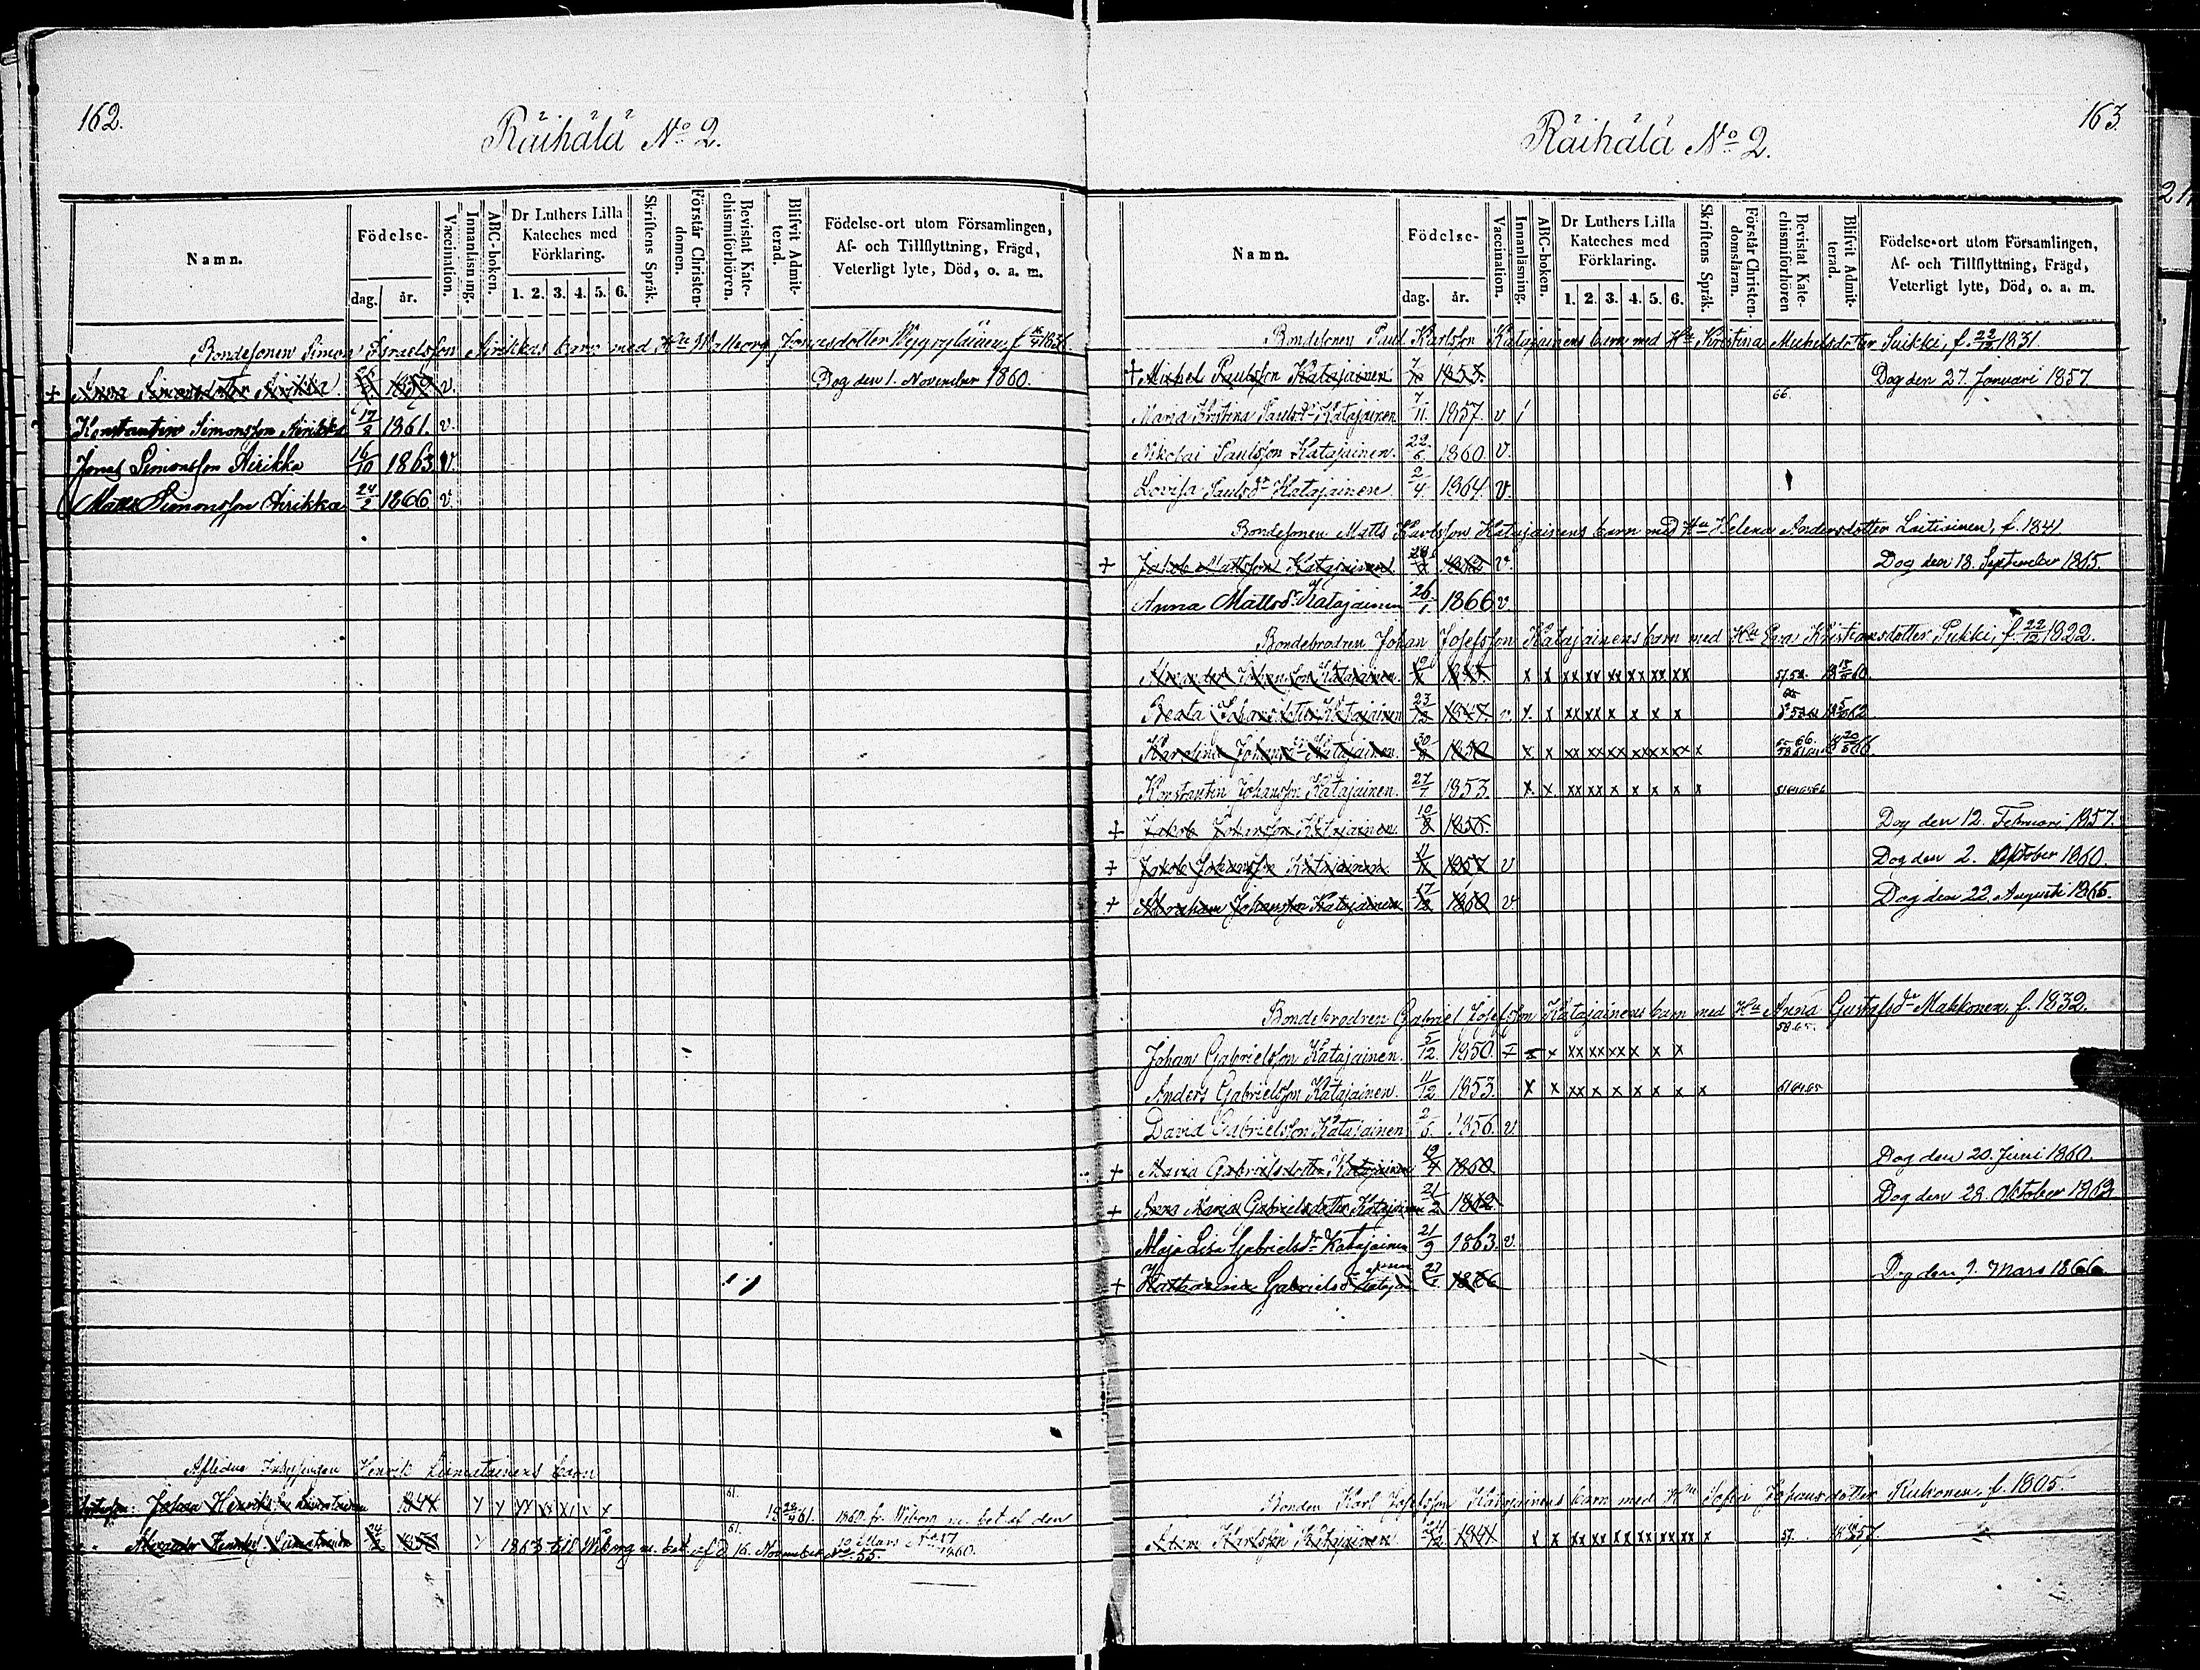 162.
Räihälä No 2.
Namn.
Födelse-
dag.
år.
Vaccination.
Innanläsning.
ABC-boken.
Dr Luthers Lilla
Kateches med
Förklaring.
1. 2. 3. 4. 5. 6.
Skriftens Språk.
Förstår Christen-
domen.
Bevistat Kate-
chismiförhören.
Blifvit Admit-
terad.
Födelse-ort utom Församlingen,
Af- och Tillflyttning, Frägd,
Veterligt lyte, Död, o. a. m.
Bondesonen Simon Israelsson Airikkas barn med Hu Walborg
+ Anna Simonsdotter Airikka 1859 v. Dog den 1. November 1860.
Konstantin Simonsson Airikka 17/3 1861. v.
Jonas Simonsson Airikka 16/10 1863 v.
Matts Simonsson Airikka 24/2 1866 v.
Aflidne Henrik barn
Johan 1844 61. 1861. 1860. fr. Wiborg m. bet. af den
Alexander 24 1863 till Wiborg m. bet. af d. 16. November No 55. 1860.
163.
Räihälä No 2.
Namn.
Födelse-
dag.
år.
Vaccination.
Innanläsning.
ABC-boken.
Dr Luthers Lilla
Kateches med
Förklaring.
1. 2. 3. 4. 5. 6.
Skriftens Språk.
Förstår Christen-
domsläran.
Bevistat Kate-
chismiförhören
Blifvit Admit-
terad.
Födelse-ort utom Församlingen,
Af- och Tillflyttning, Frägd,
Veterligt lyte, Död, o. a. m.
Bondesonen Paul Karlsson Katajainens barn med Hu Kristina Michelsdotter Suikki, f. 22/12 1831.
+ Michel Paulsson Katajainen 7/10 1855. Dog den 27. Januari 1857.
Maria Kristina Paulsdr Katajainen 7/11 1857. v / 66.
Nikolai Paulsson Katajainen. 22/6 1860. v.
Lovisa Paulsdr Katajainen. 2/4 1864. v.
Bondesonen Matts Karlsson Katajainens barn med Hu Helena Andersdotter Laitiainen, f. 1841.
+ Jakob Mattsson Katajainen 1862 v. Dog den 18. September 1865.
Anna Mattsdr Katajainen 26/1 1866 v
Bondebrodren Johan Josefsson Katajainens barn med Hu Eva Kristiansdotter Pukki, f. 22/12 1822.
Alexander Johansson Katajainen x x xx xx xx xx xx xx 57.58. 1860
Beata Johansdotter Katajainen 23/12 1847. x x xx xx x x x x 1862
Karolina Johansdr Katajainen. 30/8 1850 x x xx xx xx xx xx x x 66. 1866.
Konstantin Johansson Katajainen. 27/7 1853. x x. xx xx x x x x x
+ Jakob Johansson Katajainen. 10/8 1856. Dog den 12. Februari 1857.
+ Jakob Johansson Katajainen 1857 v Dog den 2. Oktober 1860.
+ Abraham Johansson Katajainen 17/12 1860 v Dog den 22. Augusti 1865.
Bondebrodren Gabriel Josefsson Katajainens barn med Hu Anna Gustafsdr Makkonen, f. 1832.
Johan Gabrielsson Katajainen. 5/12 1850. x x xx xx xx x x x
Anders Gabrielsson Katajainen. 11/12 1853. x x xx x x x x x x 61 64.65
David Gabrielsson Katajainen 2/6. 1856. v
+ Maria Gabrielsdotter Katajainen 19/4 1860. Dog den 20. Juni 1860.
+ Anna Maria Gabrielsdotter Katajainen 21/2 1862. Dog den 28. Oktober 1862
Maja Lisa Gabrielsdr Katajainen 21/9 1863. v.
+ Katharina Gabrielsdr Katajainen 1866 Dog den 9. Mars 1866
Bonden Karl Josefsson Katajainens barn med Hu Sofia Johansdotter Ruhonen, f. 1805.
Karlsson Katajainen 1841 x x xx xx xx xx xx xx x 57. 1857.